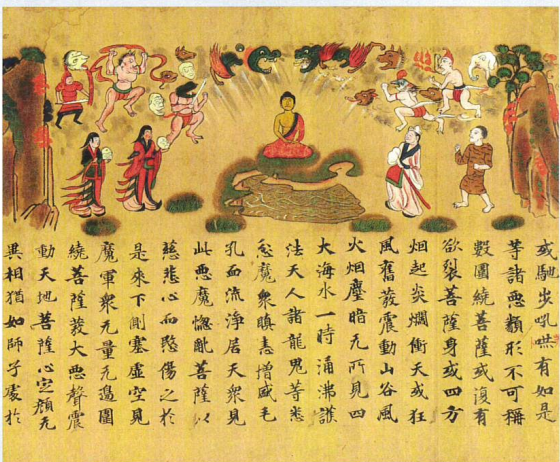 或馳步吼哮有如是
等諸惡類形不可稱
數圍繞菩薩或復有
欲裂菩薩身或四方
烟起炎爓衝天或狂
風奮發震動山谷風
火烟塵暗无所見四
大海水一時涌沸護
法天人諸龍鬼等悉
忿魔衆瞋恚增盛毛
孔血流淨居天衆見
此惡魔惱亂菩薩以
慈悲心而愍傷之於
是來下側塞虛空見
魔軍衆无量无邊圍
繞菩薩發大惡聲震
動天地菩薩心定顏无
異相猶如師子處於